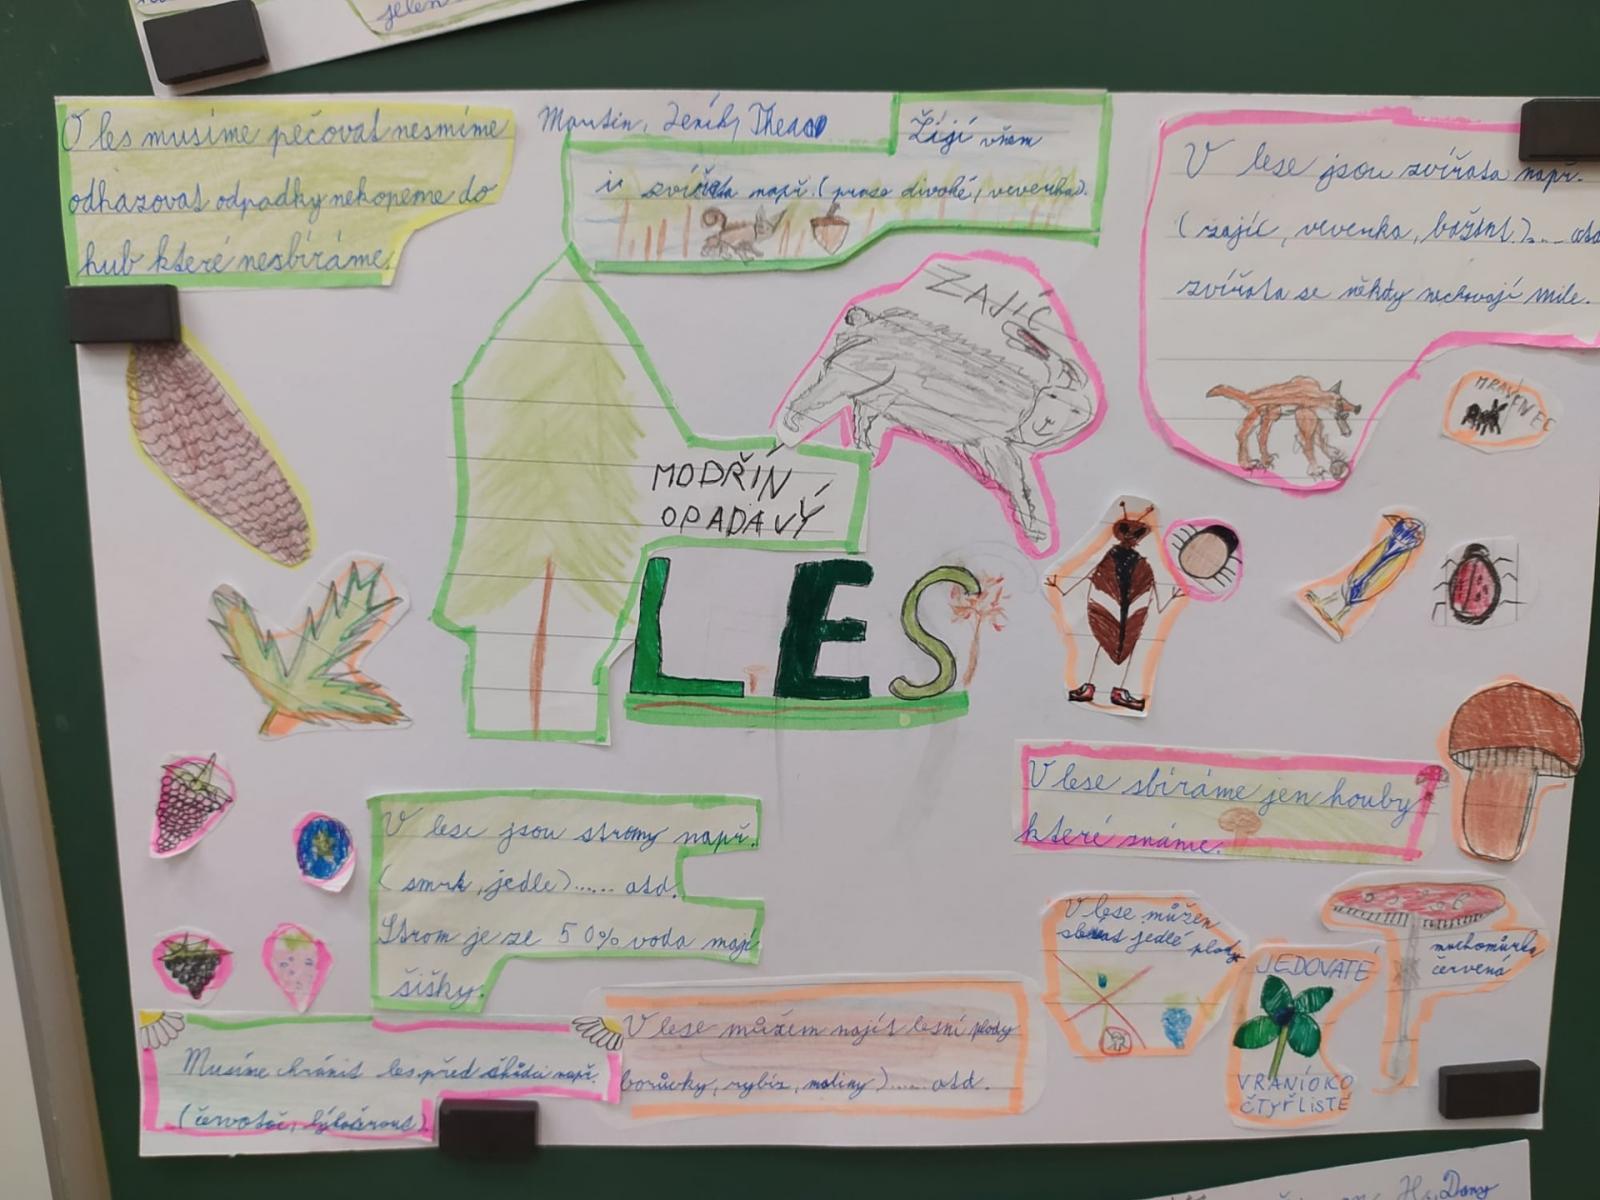 jelen
O les musíme pečovat nesmíme
odhazovat odpadky nekopeme do
hub které nesbíráme.
Martin, Jeník,
Žijí v něm
zvířata např. (prase divoké, veverka).
V lese jsou zvířata např.
(zajíc, veverka, bažant).... atd
zvířata se někdy nechovají mile.
ZAJÍC
MRAVENEC
MODŘÍN
OPADAVÝ
LES
V lese sbíráme jen houby
které známe.
V lese jsou stromy např.
(smrk, jedle)...... atd.
Strom je ze 50% voda mají
šišky.
V lese můžem
jedlé plody
JEDOVATÉ
VRANÍOKO
ČTYŘLISTÉ
muchomůrka
červená
V lese můžem najít lesní plody
borůvky, rybíz, maliny).... atd.
Musíme chránit les před škůdci např.
(červotoč,